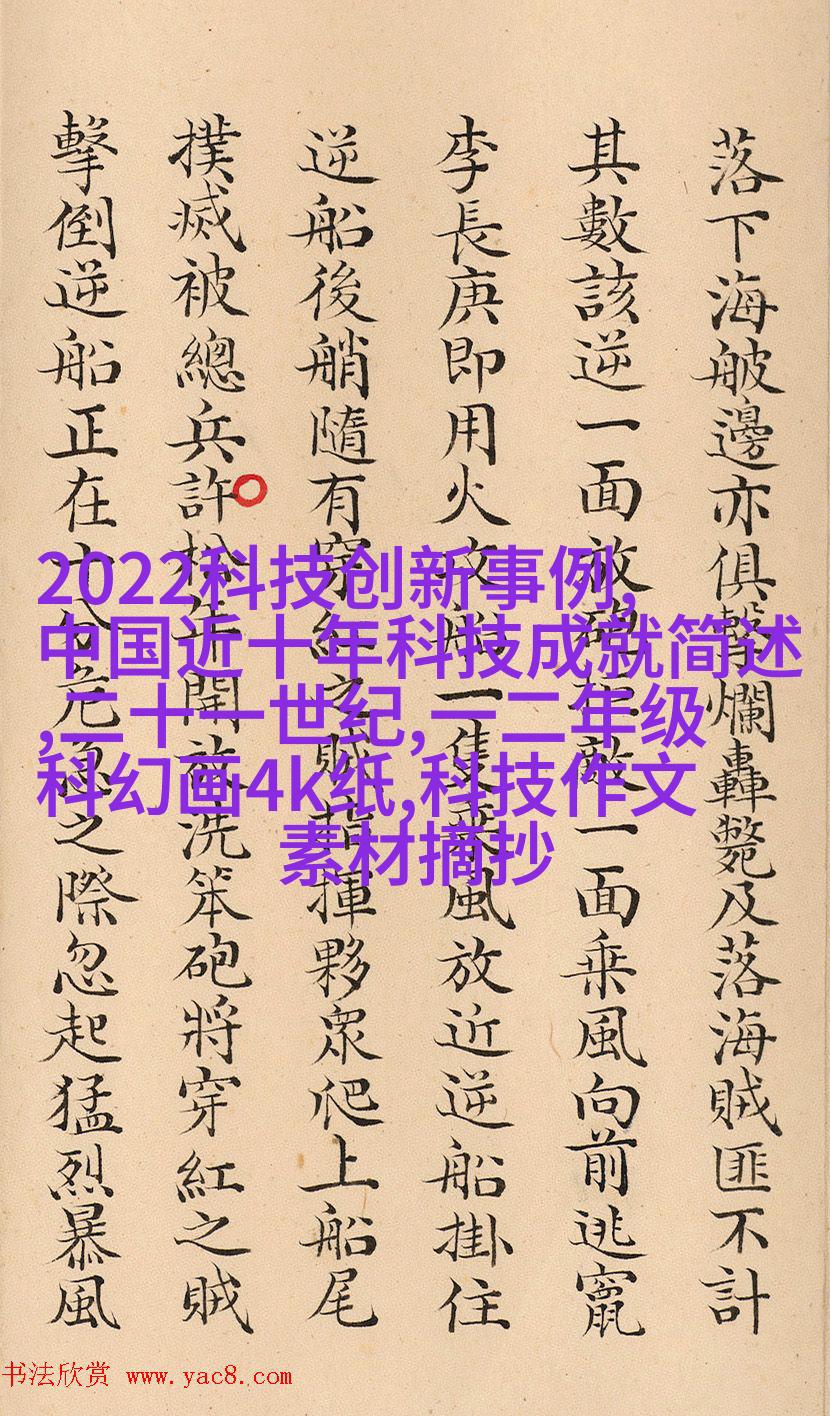 落下海䑨邊亦俱擊爛轟斃及落海賊匪不計
其數該逆一面放砲拒敵一面乘風向前逃竄
李長庚即用火攻船一隻乘風放近逆船掛住
逆船後艄隨有穿紅之賊指揮夥眾爬上船尾
撲滅被總兵許松年開放洗笨砲將穿紅之賊
擊倒逆船正在十分危急之際忽起猛烈暴風
2022科技创新事例,
中国近十年科技成就简述
,二十一世纪,一二年级
科幻画4k纸,科技作文
素材摘抄
书法欣赏 www.yac8.com